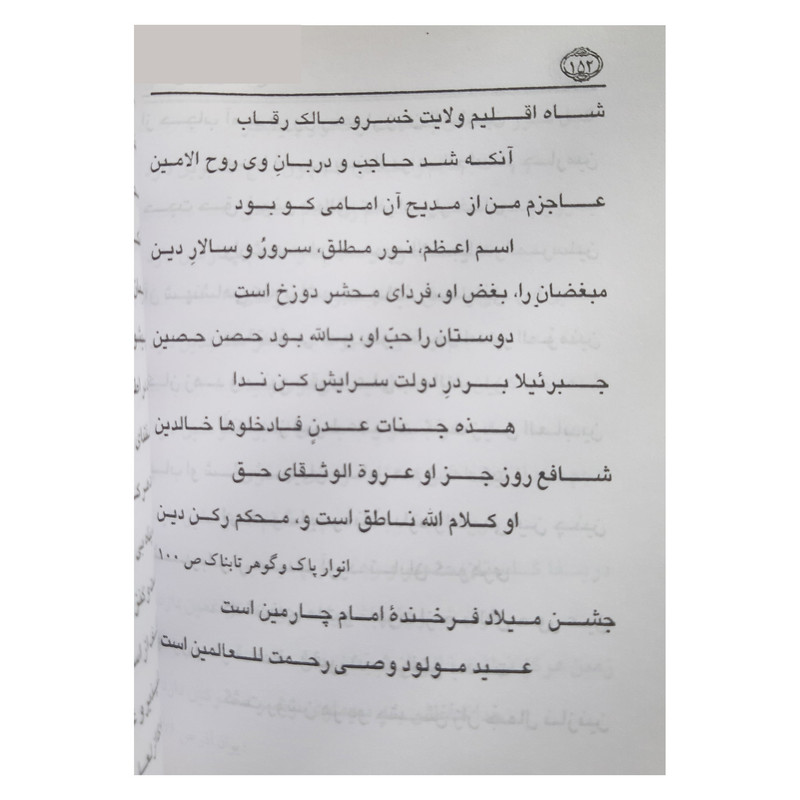 ۱۵۲
شاه اقلیم ولایت خسرو مالک رقاب
آنکه شد حاجب و دربانِ وی روح الامین
عاجزم من از مدیح آن امامی کو بود
اسم اعظم، نور مطلق، سرورُ و سالارِ دین
مبغضانِ را، بغض او، فردای محشر دوزخ است
دوستان را حبّ او، بالله بود حصن حصین
جبرئیلا بر درِ دولت سرایش کن ندا
هذه جنات عدنٍ فادخلوها خالدین
شافع روز جز او عروة الوثقای حق
او کلام الله ناطق است و، محکم رکن دین
انوار پاک و گوهر تابناک ص ۱۰۰
جشن میلاد فرخندهٔ امام چارمین است
عید مولود وصی رحمت للعالمین است